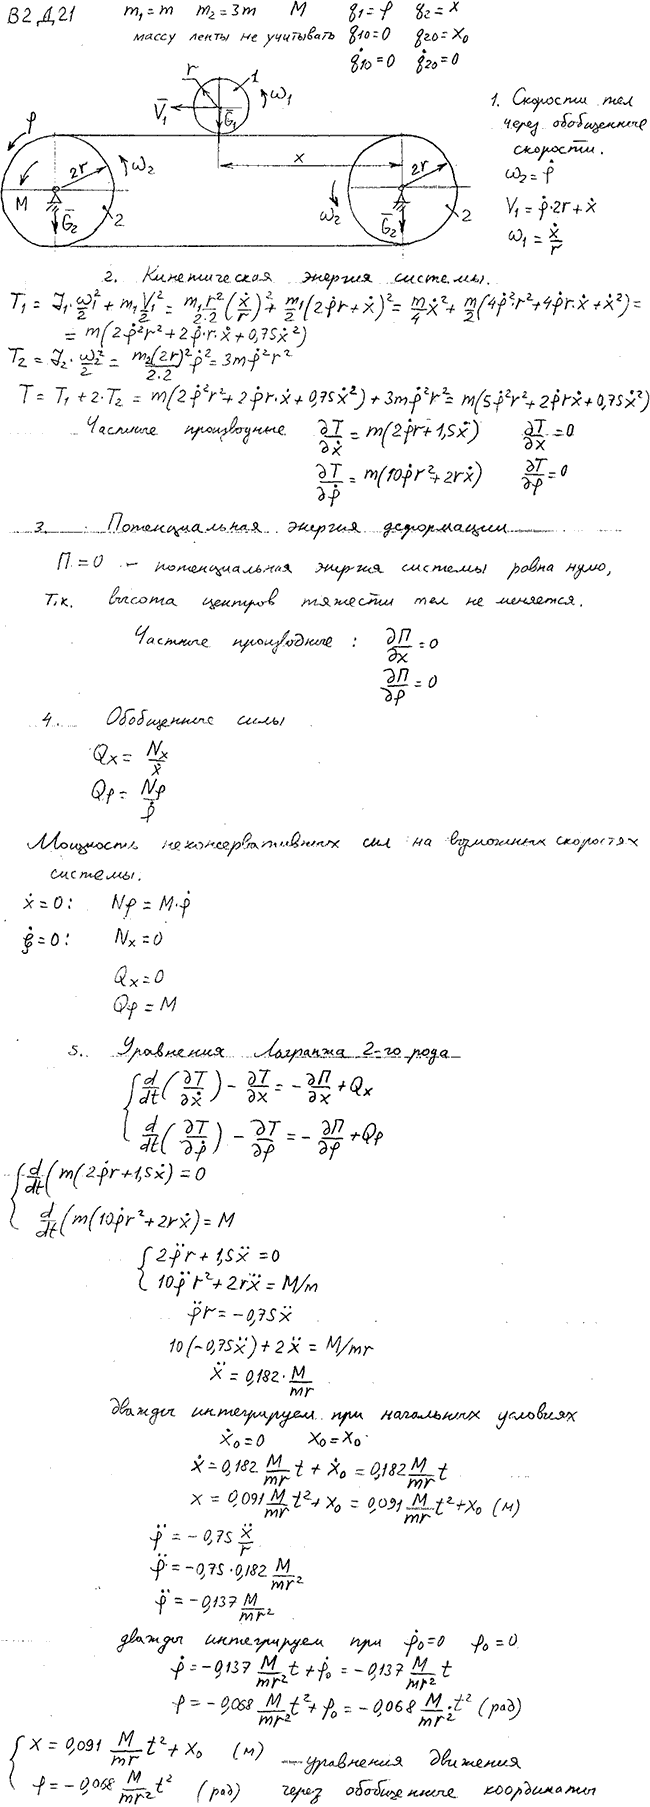 В2 Д21 m₁=m m₂=3m M q₁=φ q₂=x
массу ленты не учитывать q₁₀=0 q₂₀=x₀
q̇₁₀=0 q̇₂₀=0
r 1 ω₁ V̄₁ Ḡ₁
φ M 2r ω₂ Ḡ₂ 2 x ω₂ Ḡ₂ 2r 2
1. Скорости тел
через обобщенные
скорости.
ω₂=φ̇
V₁=φ̇·2r+ẋ
ω₁=ẋ/r
2. Кинетическая энергия системы.
T₁=J₁·ω₁²/2+m₁V₁²/2=m₁r²/2·2(ẋ/r)²+m₁/2(2φ̇r+ẋ)²=m/4ẋ²+m/2(4φ̇²r²+4φ̇r·ẋ+ẋ²)=
=m(2φ̇²r²+2φ̇·r·ẋ+0,75ẋ²)
T₂=J₂·ω₂²/2=m₂(2r)²/2·2φ̇²=3mφ̇²r²
T=T₁+2·T₂=m(2φ̇²r²+2φ̇r·ẋ+0,75ẋ²)+3mφ̇²r²=m(5φ̇²r²+2φ̇rẋ+0,75ẋ²)
Частные производные ∂T/∂ẋ=m(2φ̇r+1,5ẋ) ∂T/∂x=0
∂T/∂φ̇=m(10φ̇r²+2rẋ) ∂T/∂φ=0
3. Потенциальная энергия деформации
П=0 – потенциальная энергия системы равна нулю,
т.к. высота центров тяжести тел не меняется.
Частные производные: ∂П/∂x=0
∂П/∂φ=0
4. Обобщенные силы
Qx=Nx/ẋ
Qφ=Nφ/φ̇
Мощность неконсервативных сил на возможных скоростях
системы.
ẋ=0: Nφ=M·φ̇
φ̇=0: Nx=0
Qx=0
Qφ=M
5. Уравнения Лагранжа 2-го рода
d/dt(∂T/∂ẋ)-∂T/∂x=-∂П/∂x+Qx
d/dt(∂T/∂φ̇)-∂T/∂φ=-∂П/∂φ+Qφ
d/dt(m(2φ̇r+1,5ẋ)=0
d/dt(m(10φ̇r²+2rẋ)=M
2φ̈r+1,5ẍ=0
10φ̈r²+2rẍ=M/m
φ̈r=-0,75ẍ
10(-0,75ẍ)+2ẍ=M/mr
ẍ=0,182·M/mr
дважды интегрируем при начальных условиях
ẋ₀=0 x₀=x₀
ẋ=0,182M/mr t+ẋ₀=0,182M/mr t
x=0,091M/mr t²+x₀=0,091M/mr t²+x₀ (м)
φ̈=-0,75ẍ/r
φ̈=-0,75·0,182M/mr²
φ̈=-0,137M/mr²
дважды интегрируем при φ̇₀=0 φ₀=0
φ̇=-0,137M/mr² t+φ̇₀=-0,137M/mr² t
φ=-0,068M/mr² t²+φ₀=-0,068M/mr²·t² (рад)
x=0,091M/mr t²+x₀ (м) – уравнения движения
φ=-0,068M/mr² t² (рад) через обобщенные координаты